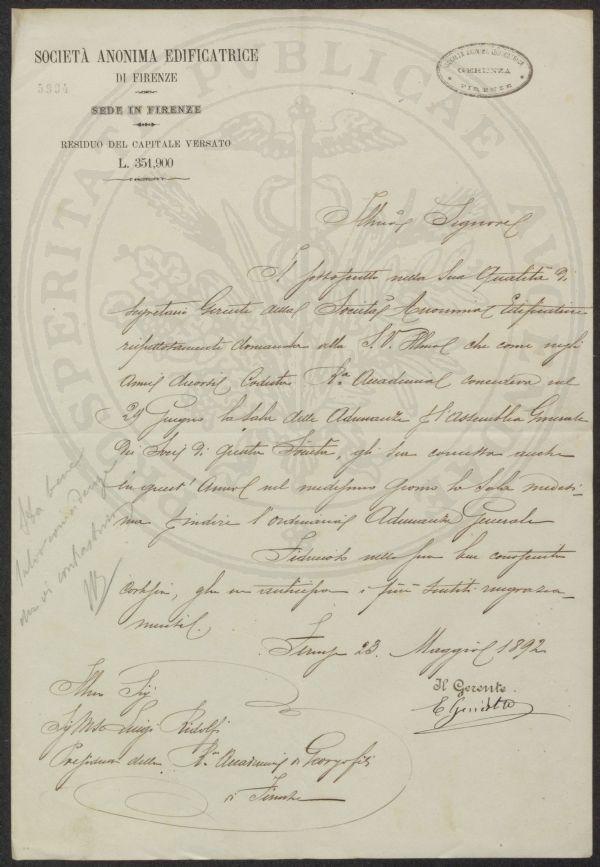 SOCIETÀ ANONIMA EDIFICATRICE
DI FIRENZE
5994
SEDE IN FIRENZE
RESIDUO DEL CAPITALE VERSATO
L. 351,900
SOCIETÀ ANONIMA EDIFICATRICE
GERENZA
FIRENZE
PROSPERITATI PVBLICAE
Signore
Il sottoscritto nella Sua Qualità di
Segretario Gerente della Società Anonima Edificatrice
rispettosamente domanda alla S.V. Illma che come negli
Anni decorsi, Codesta Ra Accademia concedeva nel
29 Giugno la Sala delle Adunanze p l'Assemblea Generale
dei Socj di questa Società, gli sia concessa anche
in quest'Anno nel medesimo Giorno la Sala medesi=
ma p indire l'ordinaria Adunanza Generale
Fiducioso nella sua ben conosciuta
cortesia, gliene anticipa i più sentiti ringrazia=
menti.
Firenze 23 Maggio 1892
Il Gerente
Sta bene
salvo
Illmo Sig
Luigi Ridolfi
Presidente della Ra Accademia di Georgofili
di Firenze